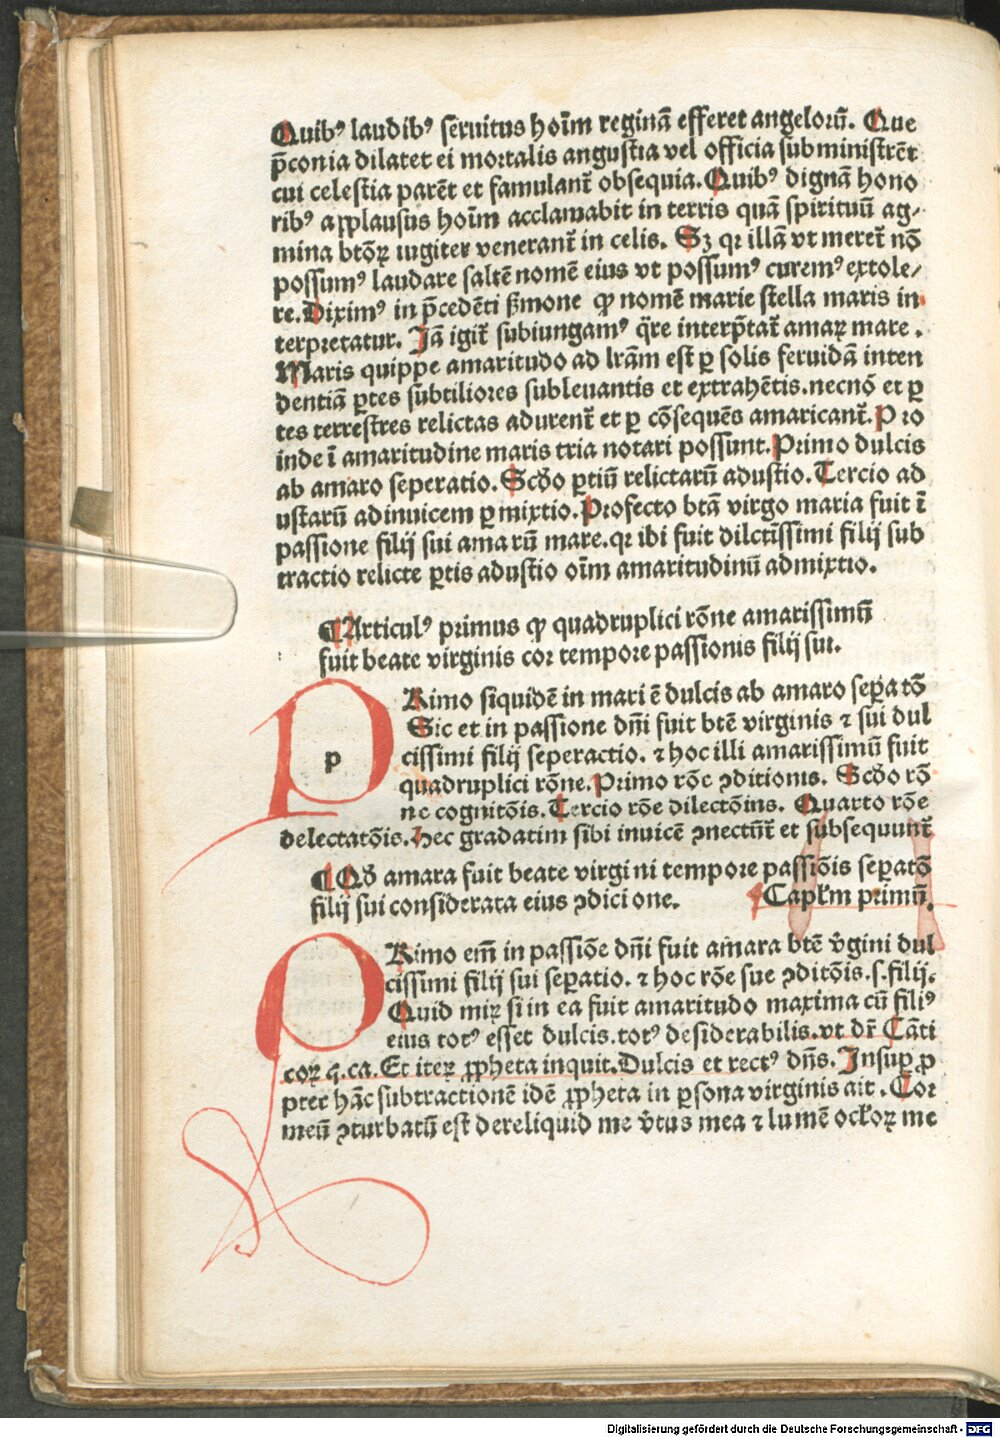 Quibꝰ laudibꝰ ſeruitus hoīm reginā efferet angeloꝝ̄. Que
p̄conia dilatet ei mortalis anguſtia vel officia ſubminiſtrēt
cui celeſtia parēt et famulant̄ obſequia. Quibꝰ dignā hono
ribꝰ applauſus hoīm acclamabit in terris quā ſpirituū ag⸗
mina btōꝝ iugiter venerant̄ in celis. Sꝫ qꝛ illā vt meret̄ nō
poſſumꝰ laudare ſaltē nomē eius vt poſſumꝰ curemꝰ extole⸗
re. Diximꝰ in p̄cedēti ẞmone ꝙ nomē marie ſtella maris in
terpretatur. Jā igit̄ ſubiungamꝰ q̈re interp̄tat̄ amaꝝ mare.
Maris quippe amaritudo ad lrām eſt ꝑ ſolis feruidā inten
dentiā ꝑtes ſubtiliores ſubleuantis et extrahētis. necnō et ꝑ
tes terreſtres relictas adurent̄ et ꝑ cōſequēs amaricant̄. Pro
inde ī amaritudine maris tria notari poſſunt. Primo dulcis
ab amaro ſeperatio. Scd̄o ꝑtiū relictarū aduſtio. Tercio ad
uſtarū adinuicem ꝑmixtio. Profecto btā virgo maria fuit ī
paſſione filij ſui amarū mare. qꝛ ibi fuit dilctiſſimi filij ſub
tractio relicte ꝑtis aduſtio oīm amaritudinū admixtio.
¶ Articulꝰ primus ꝙ quadruplici rōne amariſſimū
fuit beate virginis cor tempore paſſionis filij ſui.
p
Rimo ſiquidē in mari ē dulcis ab amaro ſeꝑatō
Sic et in paſſione dn̄i fuit btē virginis ⁊ ſui dul
ciſſimi filij ſeperactio. ⁊ hoc illi amariſſimū fuit
quadruplici rōne. Primo rōe ꝯditionis. Scd̄o rō
ne cognitōis. Tercio rōe dilectōins. Quarto rōe
delectatōis. Hec gradatim ſibi inuicē ꝯnectūt̄ et ſubſequunt̄
¶ Qd̄ amara fuit beate virgini tempore paſſiōis ſeꝑatō
filij ſui conſiderata eius ꝯdicione. Caplm primū.
Rimo em̄ in paſſiōe dn̄i fuit amara btē v̄gini dul
ciſſimi filij ſui ſeꝑatio. ⁊ hoc rōe ſue ꝯditōis. ſ. filij.
Quid miꝝ ſi in ea fuit amaritudo maxima cū filiꝰ
eius totꝰ eſſet dulcis. totꝰ deſiderabilis. vt dr̄ Cāti
coꝝ q. ca. Et iteꝝ ꝓpheta inquit. Dulcis et rectꝰ dn̄s. Jnſuꝑ ꝓ
pter hāc ſubtractionē idē ꝓpheta in ꝑſona virginis ait. Cor
meū ꝯturbatū eſt dereliquid me v̄tus mea ⁊ lumē ocl̄oꝝ me
Digitalisierung gefördert durch die Deutsche Forschungsgemeinschaft - DFG